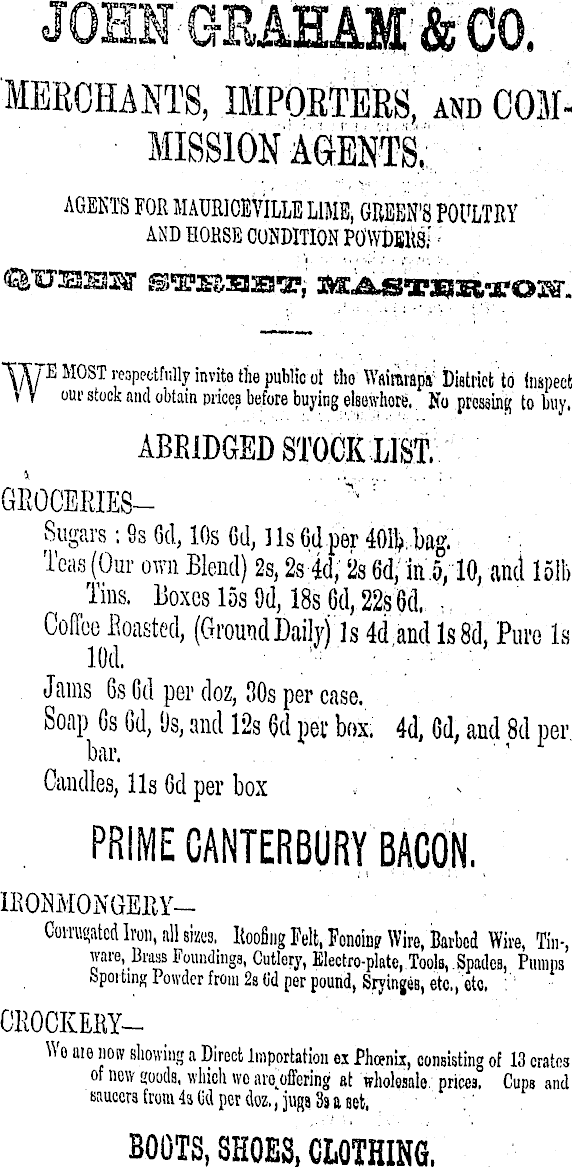 JOHN GRAHAM & CO.
MERCHANTS, IMPORTERS, AND COM-
MISSION AGENTS.
AGENTS FOR MAURICEVILLE LIME, GREEN'S POULTRY
AND HORSE CONDITION POWDERS.
QUEEN STREET, MASTERTON.
WE MOST respectfully invite the public of the Wairarapa District to inspect
our stock and obtain prices before buying elsewhere. No pressing to buy.
ABRIDGED STOCK LIST.
GROCERIES—
Sugars : 9s 6d, 10s 6d, 11s 6d per 40lb bag.
Teas (Our own Blend) 2s, 2s 4d, 2s 6d, in 5, 10, and 15lb
Tins. Boxes 15s 9d, 18s 6d, 22s 6d.
Coffee Roasted, (Ground Daily) 1s 4d and 1s 8d, Pure 1s
10d.
Jams 6s 6d per doz, 30s per case.
Soap 6s 6d, 9s, and 12s 6d per box. 4d, 6d, and 8d per
bar.
Candles, 11s 6d per box
PRIME CANTERBURY BACON.
IRONMONGERY—
Corrugated Iron, all sizes. Roofing Felt, Fencing Wire, Barbed Wire, Tin-,
ware, Brass Foundings, Cutlery, Electro-plate, Tools, Spades, Pumps
Sporting Powder from 2s 6d per pound, Sryinges, etc., etc.
CROCKERY—
We are now showing a Direct Importation ex Phœnix, consisting of 13 crates
of new goods, which we are offering at wholesale prices. Cups and
saucers from 4s 6d per doz., jugs 3s a set.
BOOTS, SHOES, CLOTHING.